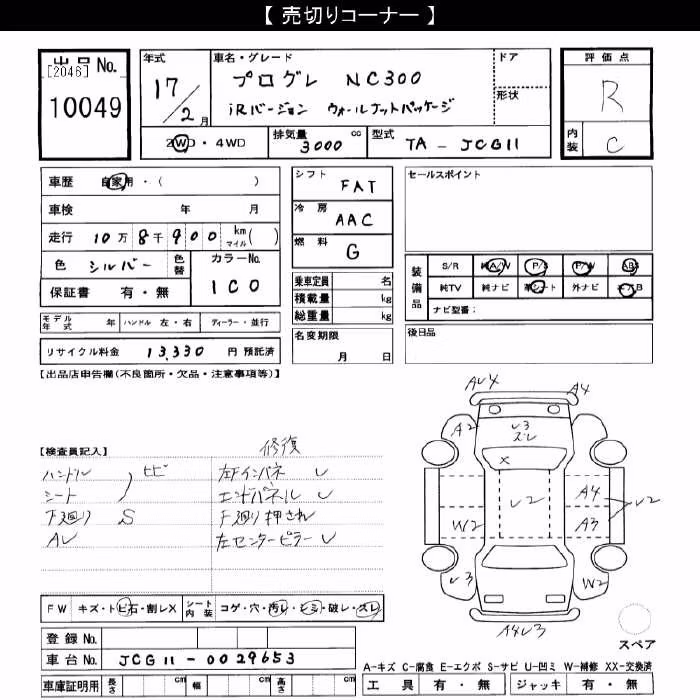 【 売切りコーナー 】
出品No.
[2046]
10049
年式
17
/2月
車名・グレード
プログレ NC300
iRバージョン ウォールナットパッケージ
ドア
形状
評価点
R
内装
C
2WD・4WD
排気量
3000 cc
型式
TA - JCG11
車歴 自家用・( )
車検 年 月
走行 10万8千900 km マイル( )
色 シルバー 色替
カラーNo.
1C0
保証書 有・無
シフト
FAT
冷房
AAC
燃料
G
セールスポイント
装備品
S/R 純A/W P/S P/W ABS
純TV 純ナビ 革シート 外ナビ エアB
ナビ型番:
乗車定員 名
積載量 kg
総重量 kg
モデル年式 年 ハンドル 左・右 ディーラー・並行
名変期限
月 日
後日品
リサイクル料金 13,330 円 預託済
【出品店申告欄(不良箇所・欠品・注意事項等)】
【検査員記入】
修復
ハンドル ヒビ
シート
下廻り S
AV
左Fインパネ U
エンドパネル U
F廻り押され
左センターピラー U
AU4
A4
A2
U3
ズレ
X
U2
A4
A3
U2
W2
U3
W2
A8U3
スペア
FW キズ・トビ石・割レX
シート内装 コゲ・穴・汚レ・シミ・破レ・スレ
登録No.
車台No. JCG11-0029653
車庫証明用 長さ cm 幅 cm 高さ cm
A-キズ C-腐食 E-エクボ S-サビ U-凹ミ W-補修 XX-交換済
工具 有・無 ジャッキ 有・無